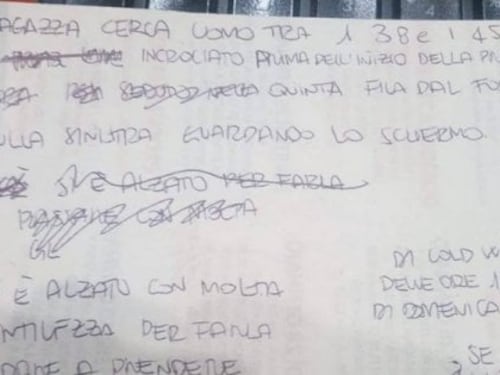 AGAZZA CERCA UOMO TRA I 38 e I 45
INCROCIATO PRIMA DELL'INIZIO DELLA PR
SEDUTO NELLA QUINTA FILA DAL FO
ULLA SINISTRA GUARDANDO LO SCHERMO.
SI È ALZATO PER FARLA
GE
È ALZATO CON MOLTA
NTILEZZA PER FARLA
DARE A PRENDERE
DI COLD W
DELLE ORE 1
DI DOMENICA
SE